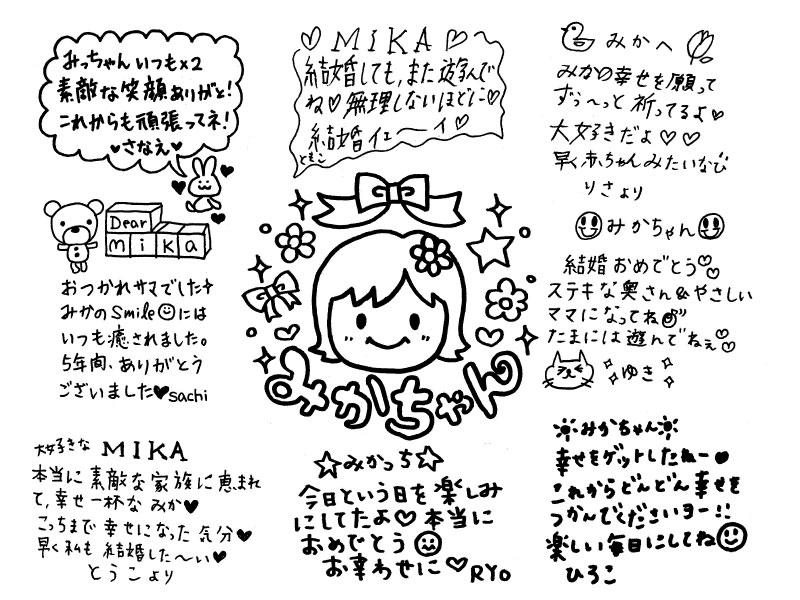 みっちゃん いつも×2
素敵な笑顔ありがと!
これからも頑張ってネ!
♥さなえ♥
♡MIKA♡
結婚しても、また遊んで
ね♡無理しないほどに♡
結婚イェーイ♡
ともこ
みかへ
みかの幸せを願って
ずぅ〜っと祈ってるよ♥
大好きだよ♡♡
早く赤ちゃんみたいなぁ
りさより
Dear
mika
おつかれサマでした
みかのSmile☺には
いつも癒されました。
5年間、ありがとう
ございました♥sachi
みかちゃん
☺みかちゃん☺
結婚おめでとう♡♡
ステキな奥さん&やさしい
ママになってね
たまには遊んでねぇ♡♡
ゆき
大好きな MIKA
本当に素敵な家族に恵まれ
て、幸せ一杯なみか♥
こっちまで幸せになった気分♥
早く私も結婚した〜い♥
とうこより
☆みかっち☆
今日という日を楽しみ
にしてたよ♡本当に
おめでとう☺
お幸わせに♡RYO
みかちゃん
幸せをゲットしたねー♥
これからどんどん幸せを
つかんでくださいヨー!!
楽しい毎日にしてね☺
ひろこ